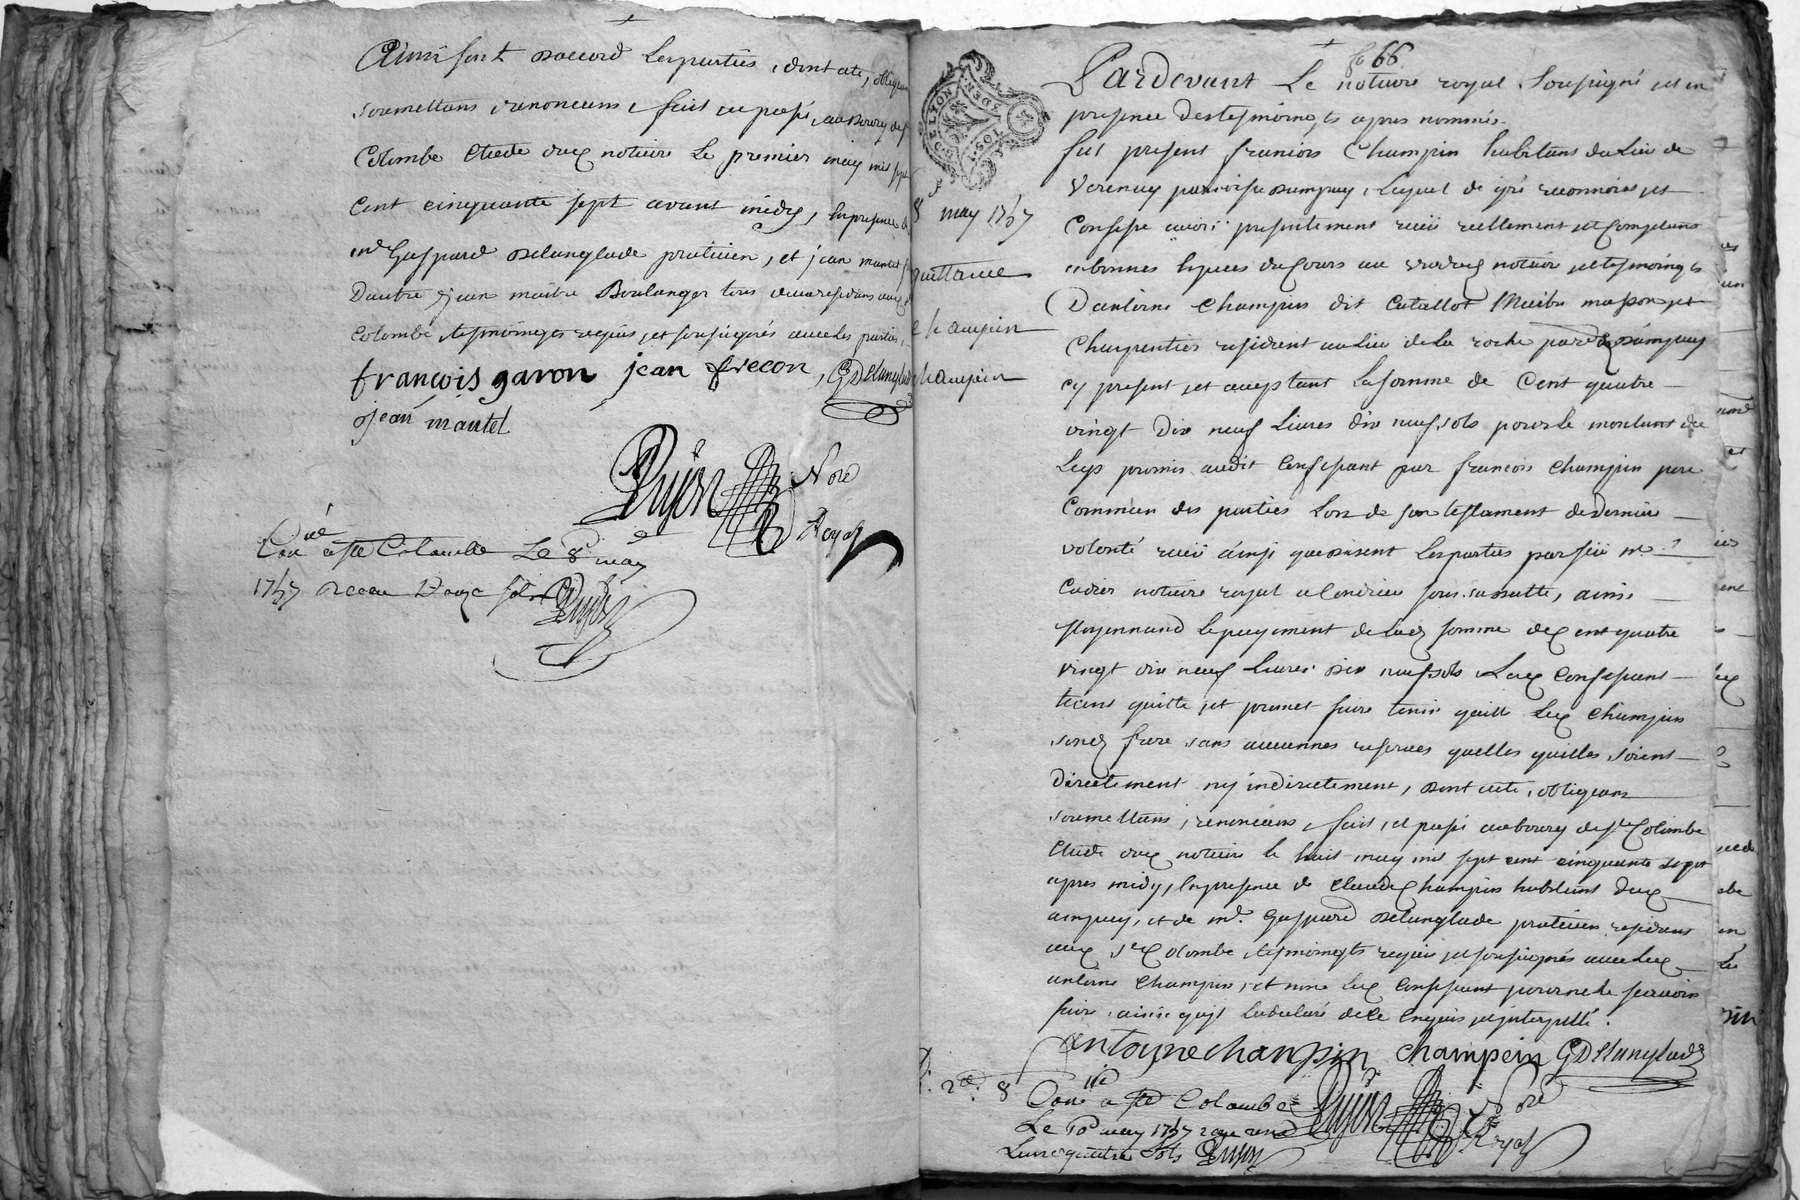 Ainsi sont daccord les parties, dont acte, obligeans
soumettans, renonceans, fait et passé, au bourg de ste
Colombe Etude dud notaire Le premier may mil sept
Cent cinquante sept avant midy, En presence de
mr Gaspard Delanglade praticien, et jean mantel
Dautre jean maitre Boulanger tous deux residans aud
Colombe tesmoingts requis et soussignés avec les parties,
françois garon jean frecon, GDelanglade
jean mantel
Dujon Nore
Royal
Con lé a ste Colombe Le 8e may
1757 Receu Douze sols Dujon
GE. LYON DEN. TOS. I
fo 66
8 may 1757
quittance
champin
champin
Pardevant Le notaire royal soussigné et en
presence des tesmoingts apres nommés
fut present francois Champin habitant du Lieu de
Verenay paroisse dampuy, Lequel de gré reconnoist et
Confesse avoir presentement receu reellement et Comptant
en bonnes especes du Cours au veu dud notaire et tesmoingts
Dantoine Champin dit Catallot Maitre masson et
Charpentier residant au Lieu de La roche parsse Dampuy
cy present et acceptant La somme de Cent quatre
vingt Dix neuf Livres dix neuf sols pour le montant du
Legs promis audit Confessant par francois Champin pere
Commun des parties Lors de son testament de derniere
volonté receu ainsi que disent Les parties par feu me
Cadier notaire royal a Condrieu sous sa datte, ainsi
Moyennand le payement de lad somme de Cent quatre
vingt dix neuf Livres dix neuf sols Led Confessant
tient quitte et promet faire tenir quitte Led Champin
sond frere sans aucunnes reserves quelles quelles soient
directement ny indirectement, dont acte, obligeans
soumettans, renonceans, fait et passé au bourg de ste Colombe
Etude dud notaire le huit may mil sept cent cinquante sept
apres midy, En presence de Claude Champin habitant dud
ampuy, et de mr. Gaspard Delanglade praticien residans
aud ste Colombe, tesmoingts requis et soussignés avec Led
antoine Champin, et non Led Confessant pour ne le scavoir
faire, ainsi quil la declaré de Ce Enquis et interpellé.
antoyne chanpin champein GDelanglade
2d. 8 Con lé a ste Colombe Dujon Nore
Le 10e may 1757 receu Royal
Livre quatre sols Dujon